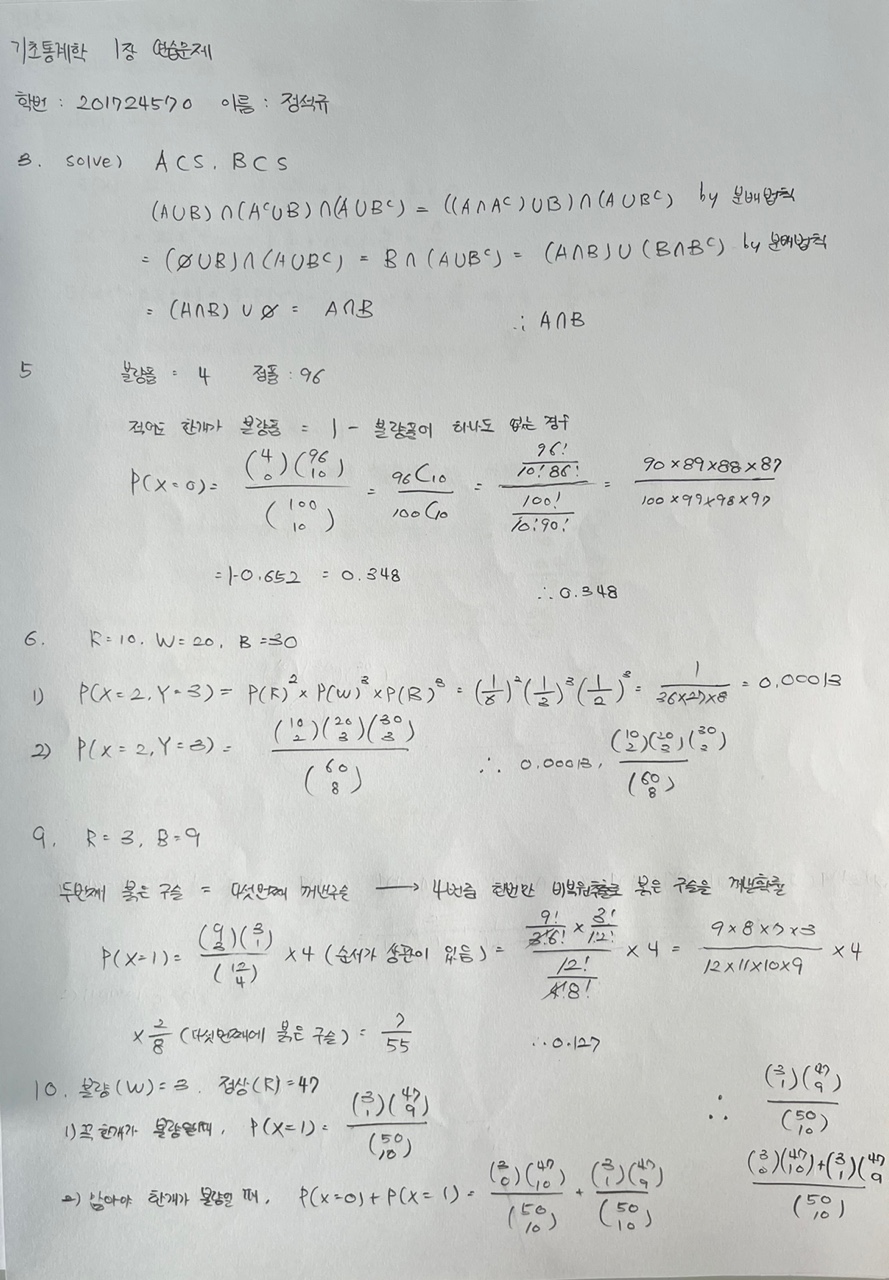 기초통계학 1장 연습문제
학번 : 201724570 이름 : 정석규
3. solve) A⊂S, B⊂S
(A∪B)∩(A^c∪B)∩(A∪B^c) = ((A∩A^c)∪B)∩(A∪B^c) by 분배법칙
= (∅∪B)∩(A∪B^c) = B∩(A∪B^c) = (A∩B)∪(B∩B^c) by 분배법칙
= (A∩B)∪∅ = A∩B ∴ A∩B
5 불량품 = 4 정품 : 96
적어도 한개가 불량품 = 1 - 불량품이 하나도 없는 경우
P(X=0) = (4 0)(96 10) / (100 10) = 96C10 / 100C10 = (96! / 10!86!) / (100! / 10!90!) = 90×89×88×87 / 100×99×98×97
= 1-0.652 = 0.348 ∴ 0.348
6. R=10, W=20, B=30
1) P(X=2, Y=3) = P(R)^2 × P(W)^3 × P(B)^3 = (1/6)^2 (1/3)^3 (1/2)^3 = 1 / 36×27×8 = 0.00013
2) P(X=2, Y=3) = (10 2)(20 3)(30 3) / (60 8) ∴ 0.00013, (10 2)(20 3)(30 3) / (60 8)
9. R=3, B=9
두번째 붉은 구슬 = 다섯번째 꺼낸구슬 → 4번중 한번만 비복원추출로 붉은 구슬을 꺼낸확률
P(X=1) = (9 3)(3 1) / (12 4) × 4 (순서가 상관이 있음) = (9! / 3!6! × 3! / 1!2!) / (12! / 4!8!) × 4 = 9×8×7×3 / 12×11×10×9 × 4
× 2/8 (다섯번째에 붉은 구슬) = 7/55 ∴ 0.127
10. 불량(W)=3. 정상(R)=47
1) 꼭 한개가 불량일때, P(X=1) = (3 1)(47 9) / (50 10) ∴ (3 1)(47 9) / (50 10)
2) 많아야 한개가 불량일 때, P(X=0)+P(X=1) = (3 0)(47 10) / (50 10) + (3 1)(47 9) / (50 10) (3 0)(47 10)+(3 1)(47 9) / (50 10)